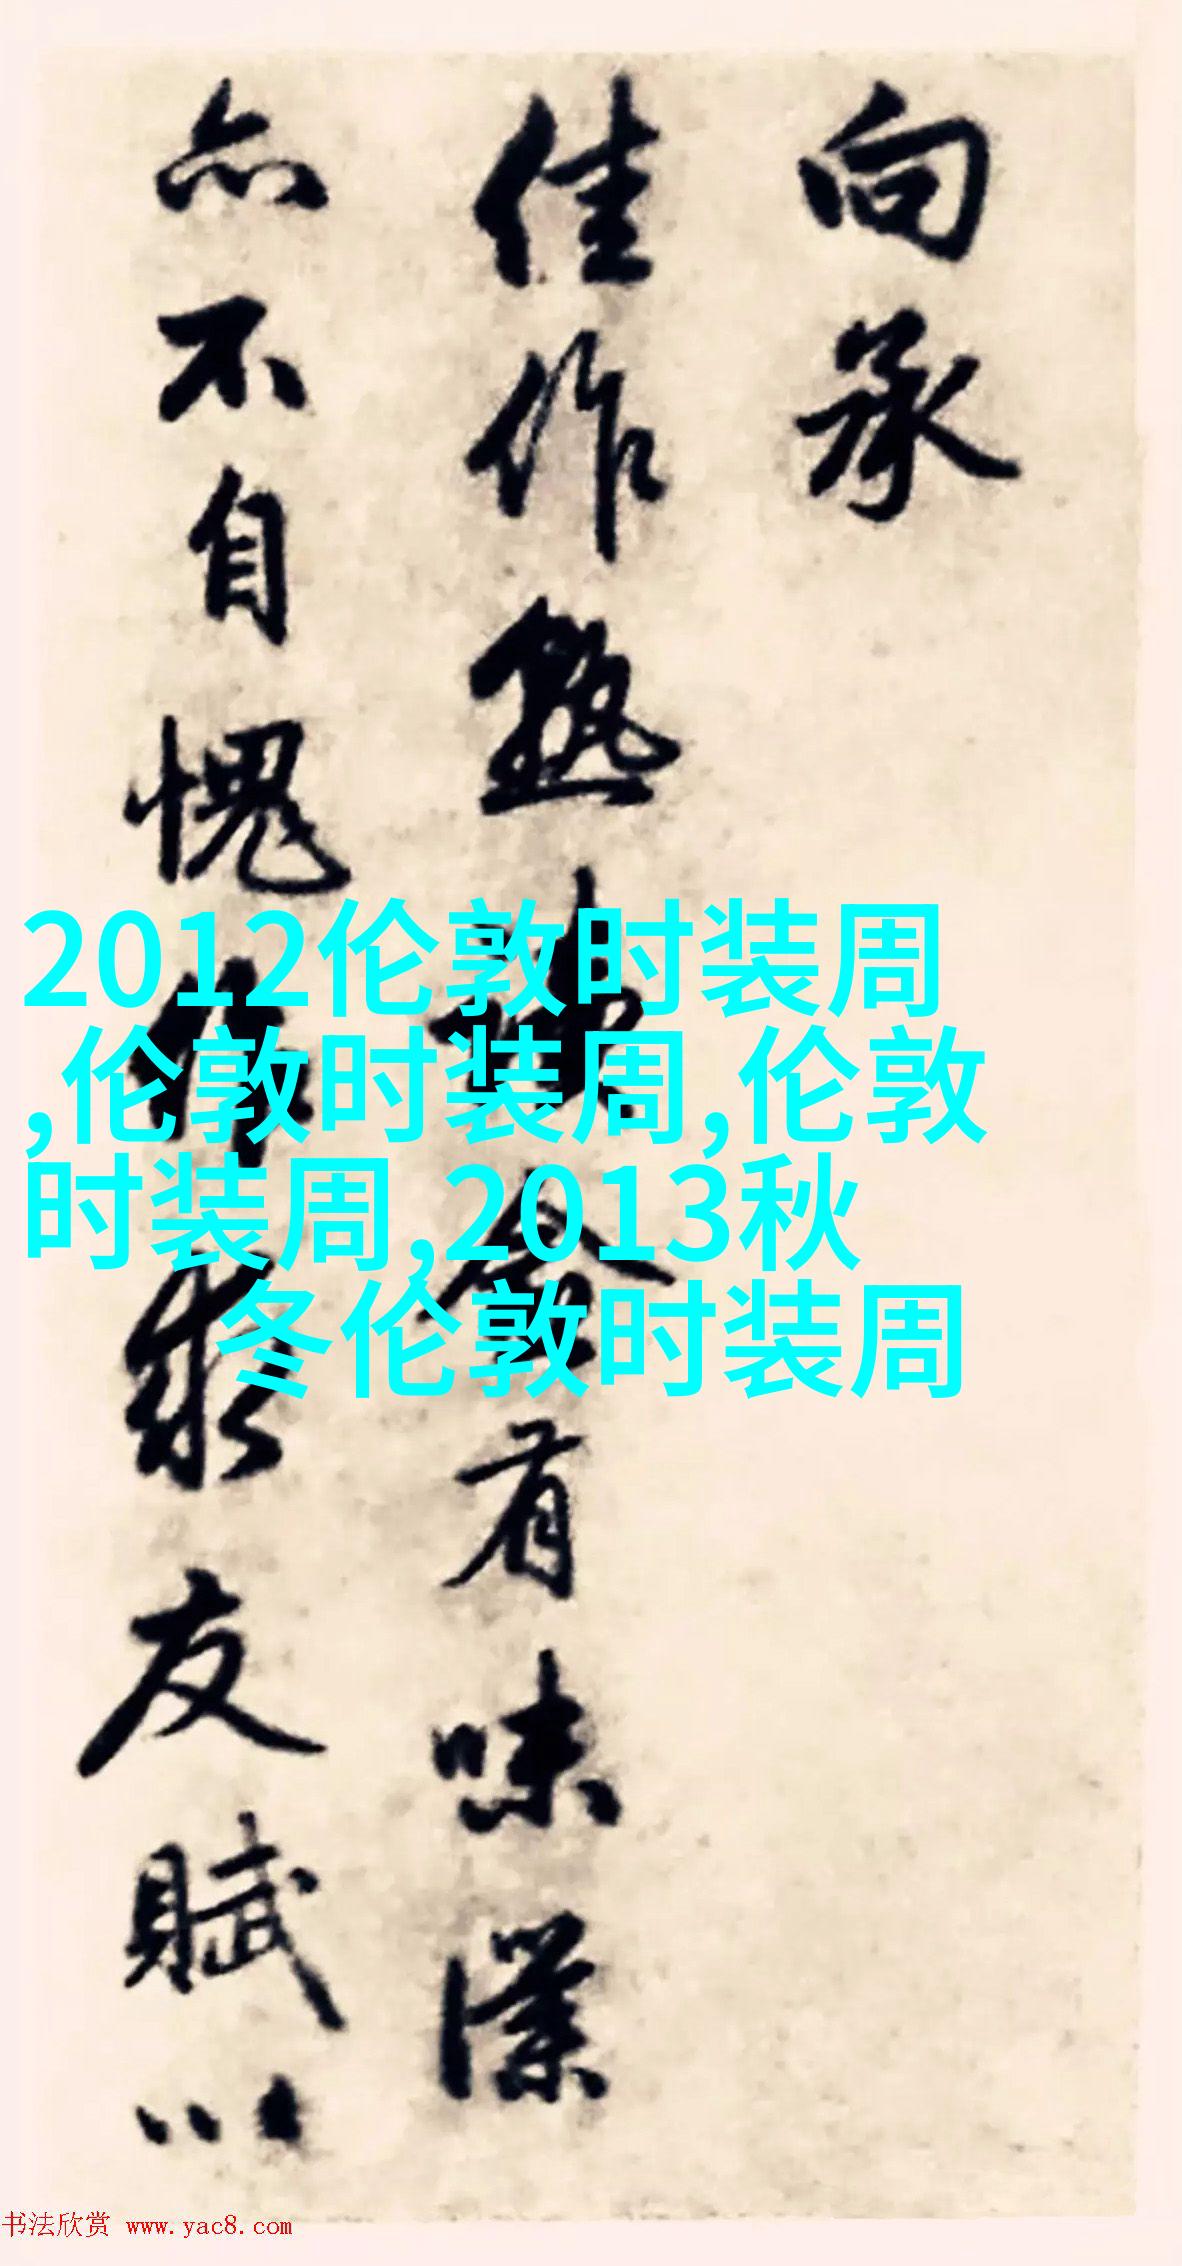 向承
佳作熟读愈有味漢
亦不自愧作報友賦以
2012伦敦时装周
,伦敦时装周,伦敦
时装周,2013秋
冬伦敦时装周
书法欣赏 www.yac8.com